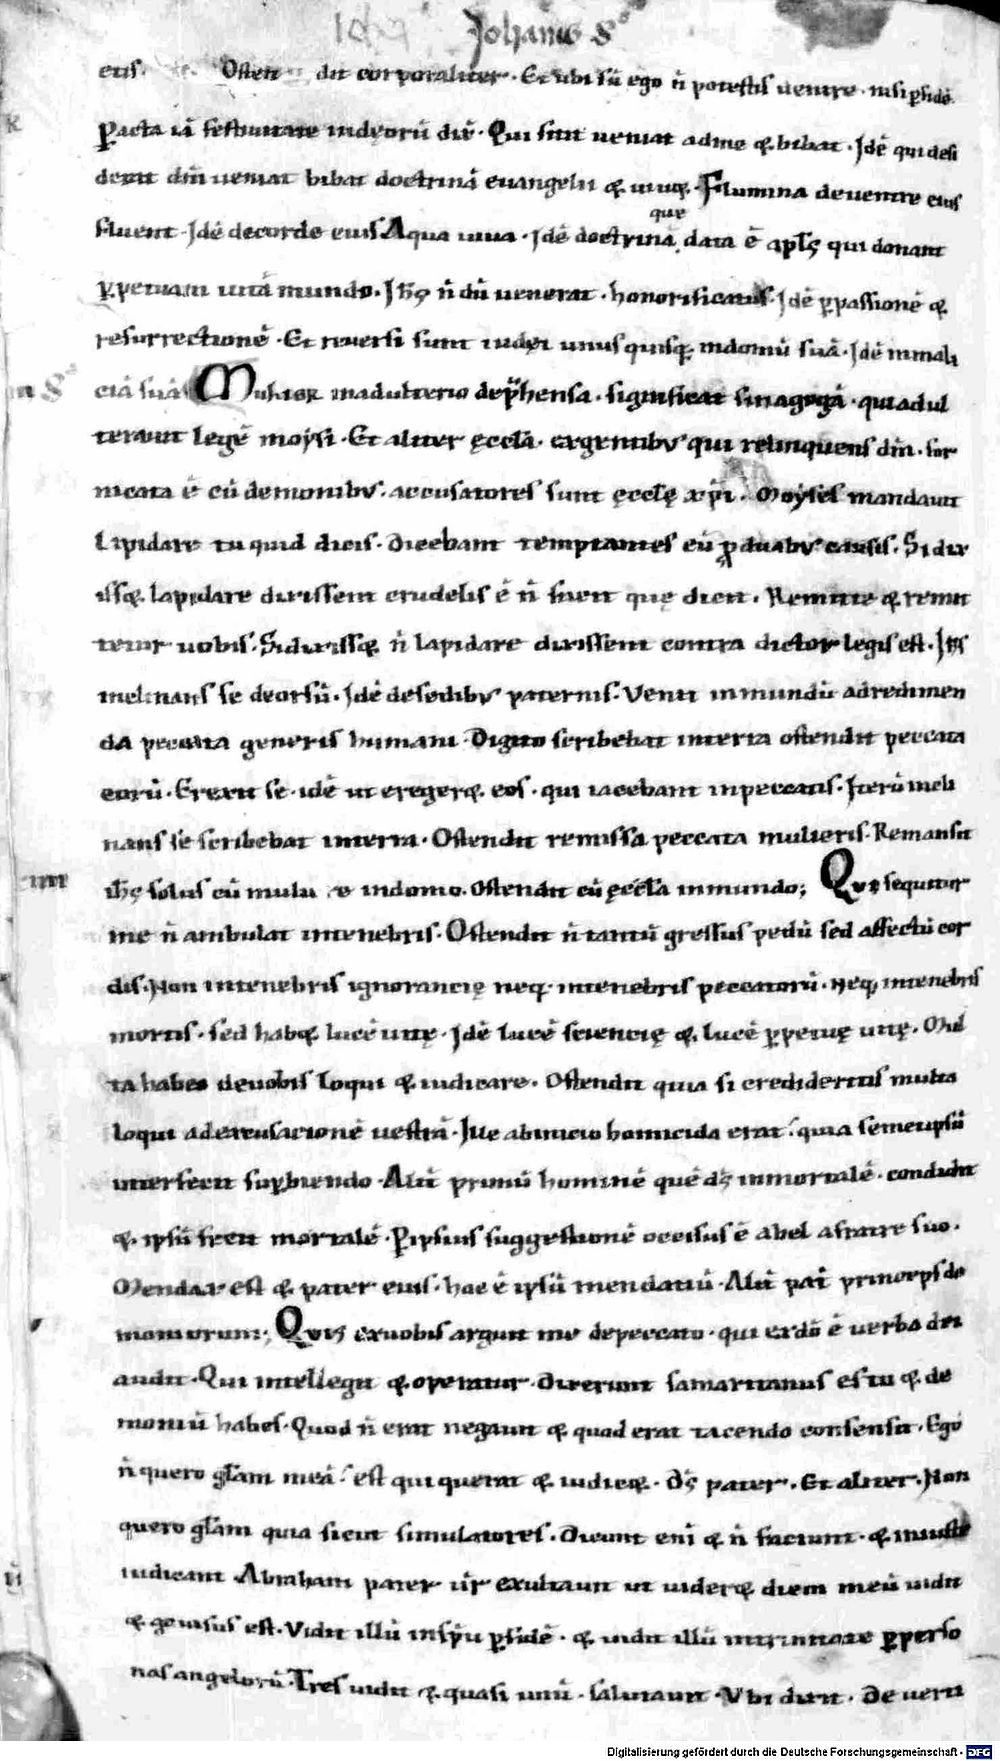 Johannis 8º
eius. Osten dit corporaliter. Et ubi sū ego n̄ potestis venire. nisi ꝑ fidē.
Ꝑacta iā festivitate iudęorū dix̄. Qui sitit veniat ad me & bibat. Idē qui desi
derat dn̄m veniat bibat doctrinā evangelii & vivę. Flumina de ventre eius
fluent. Idē de corde eius Aqua viva. Idē doctrinā que data ē apl̄is qui donant
ꝑpetuam vitā mundo. Ihs̄ n̄dū venerat. honorificatus. Idē ꝑ passionē &
resurrectionē. Et reversi sunt iudęi unus quisq; in domū suā. Idē in mali
in 8º
ciā suā. Mulier in adulterio dep̄hensa. significat sinagogā. qui adul
teravit legē moysi. Et aliter ęccl̄a. ex gentibus qui relinquens dn̄m. for
nicata ē cū demonibus. accusatores sunt ęccl̄ę xp̄i. Moyses mandavit
lapidare tu quid dicis. Dicebant temptantes eū p̄ duabus causis. Si dix
iss& lapidare dixissent crudelis ē n̄ sicut quę dicit. Remitte & remit
tetur vobis. Si dixiss& n̄ lapidare dixissent contra dictor legis est. Ihs̄
inclinans se deorsū. Idē de sedibus paternis. Venit in mundū ad redimen
da peccata generis humani. Digito scribebat in terra ostendit peccata
eorū. Erexit se. idē ut eriger& eos. qui iacebant in peccatis. Iterū incli
nans se scribebat in terra. Ostendit remissa peccata mulieris. Remansit
ihs̄ solus cū muliere in domo. Ostendit cū ęccl̄a in mundo; Qui sequitur
me n̄ ambulat in tenebris. Ostendit n̄ tantū gressus pedū sed affectū cor
dis. Non in tenebris ignorancię neq; in tenebris peccatorū. Neq; in tenebris
mortis. sed hab& lucē vitę. Idē lucē sciencię & lucē ꝑpetuę vitę. Mul
ta habeo de vobis loqui & iudicare. Ostendit quia si credideritis multa
loqui ad excusacionē vestrā. Ille ab inicio homicida erat. quia semetipsū
interfecit suꝑbiendo. Alit̄ primū hominē quē ds̄ inmortalē. condidit
& ipsū fecit mortalē. Ꝑ ipsius suggestionē occisus ē abel a fratre suo.
Mendax est & pater eius. hoc ē ipsū mendaciū. Alit̄ pat̄ princeps de
moniorum; Quis ex vobis arguit me de peccato. qui ex dō ē verba dei
audit. Qui intellegit & operatur. Dixerunt samaritanus es tu & de
moniū habes. Quod n̄ erat negavit & quod erat tacendo consensit. Ego
n̄ quero gl̄am meā. est qui querat & iudic&. Ds̄ pater. Et aliter. Non
quero gl̄am quia sicut simulatores. Dicunt enī & n̄ faciunt. & iniuste
iudicant. Abraham pater vr̄ exultavit ut vider& diem meū vidit
& gavisus est. Vidit illū in sp̄u ꝑ fidē. & vidit illū ꝑ perso
nas angelorū. Tres vidit & quasi unū. salutavit. Ubi dixit. De veru
Digitalisierung gefördert durch die Deutsche Forschungsgemeinschaft - DFG